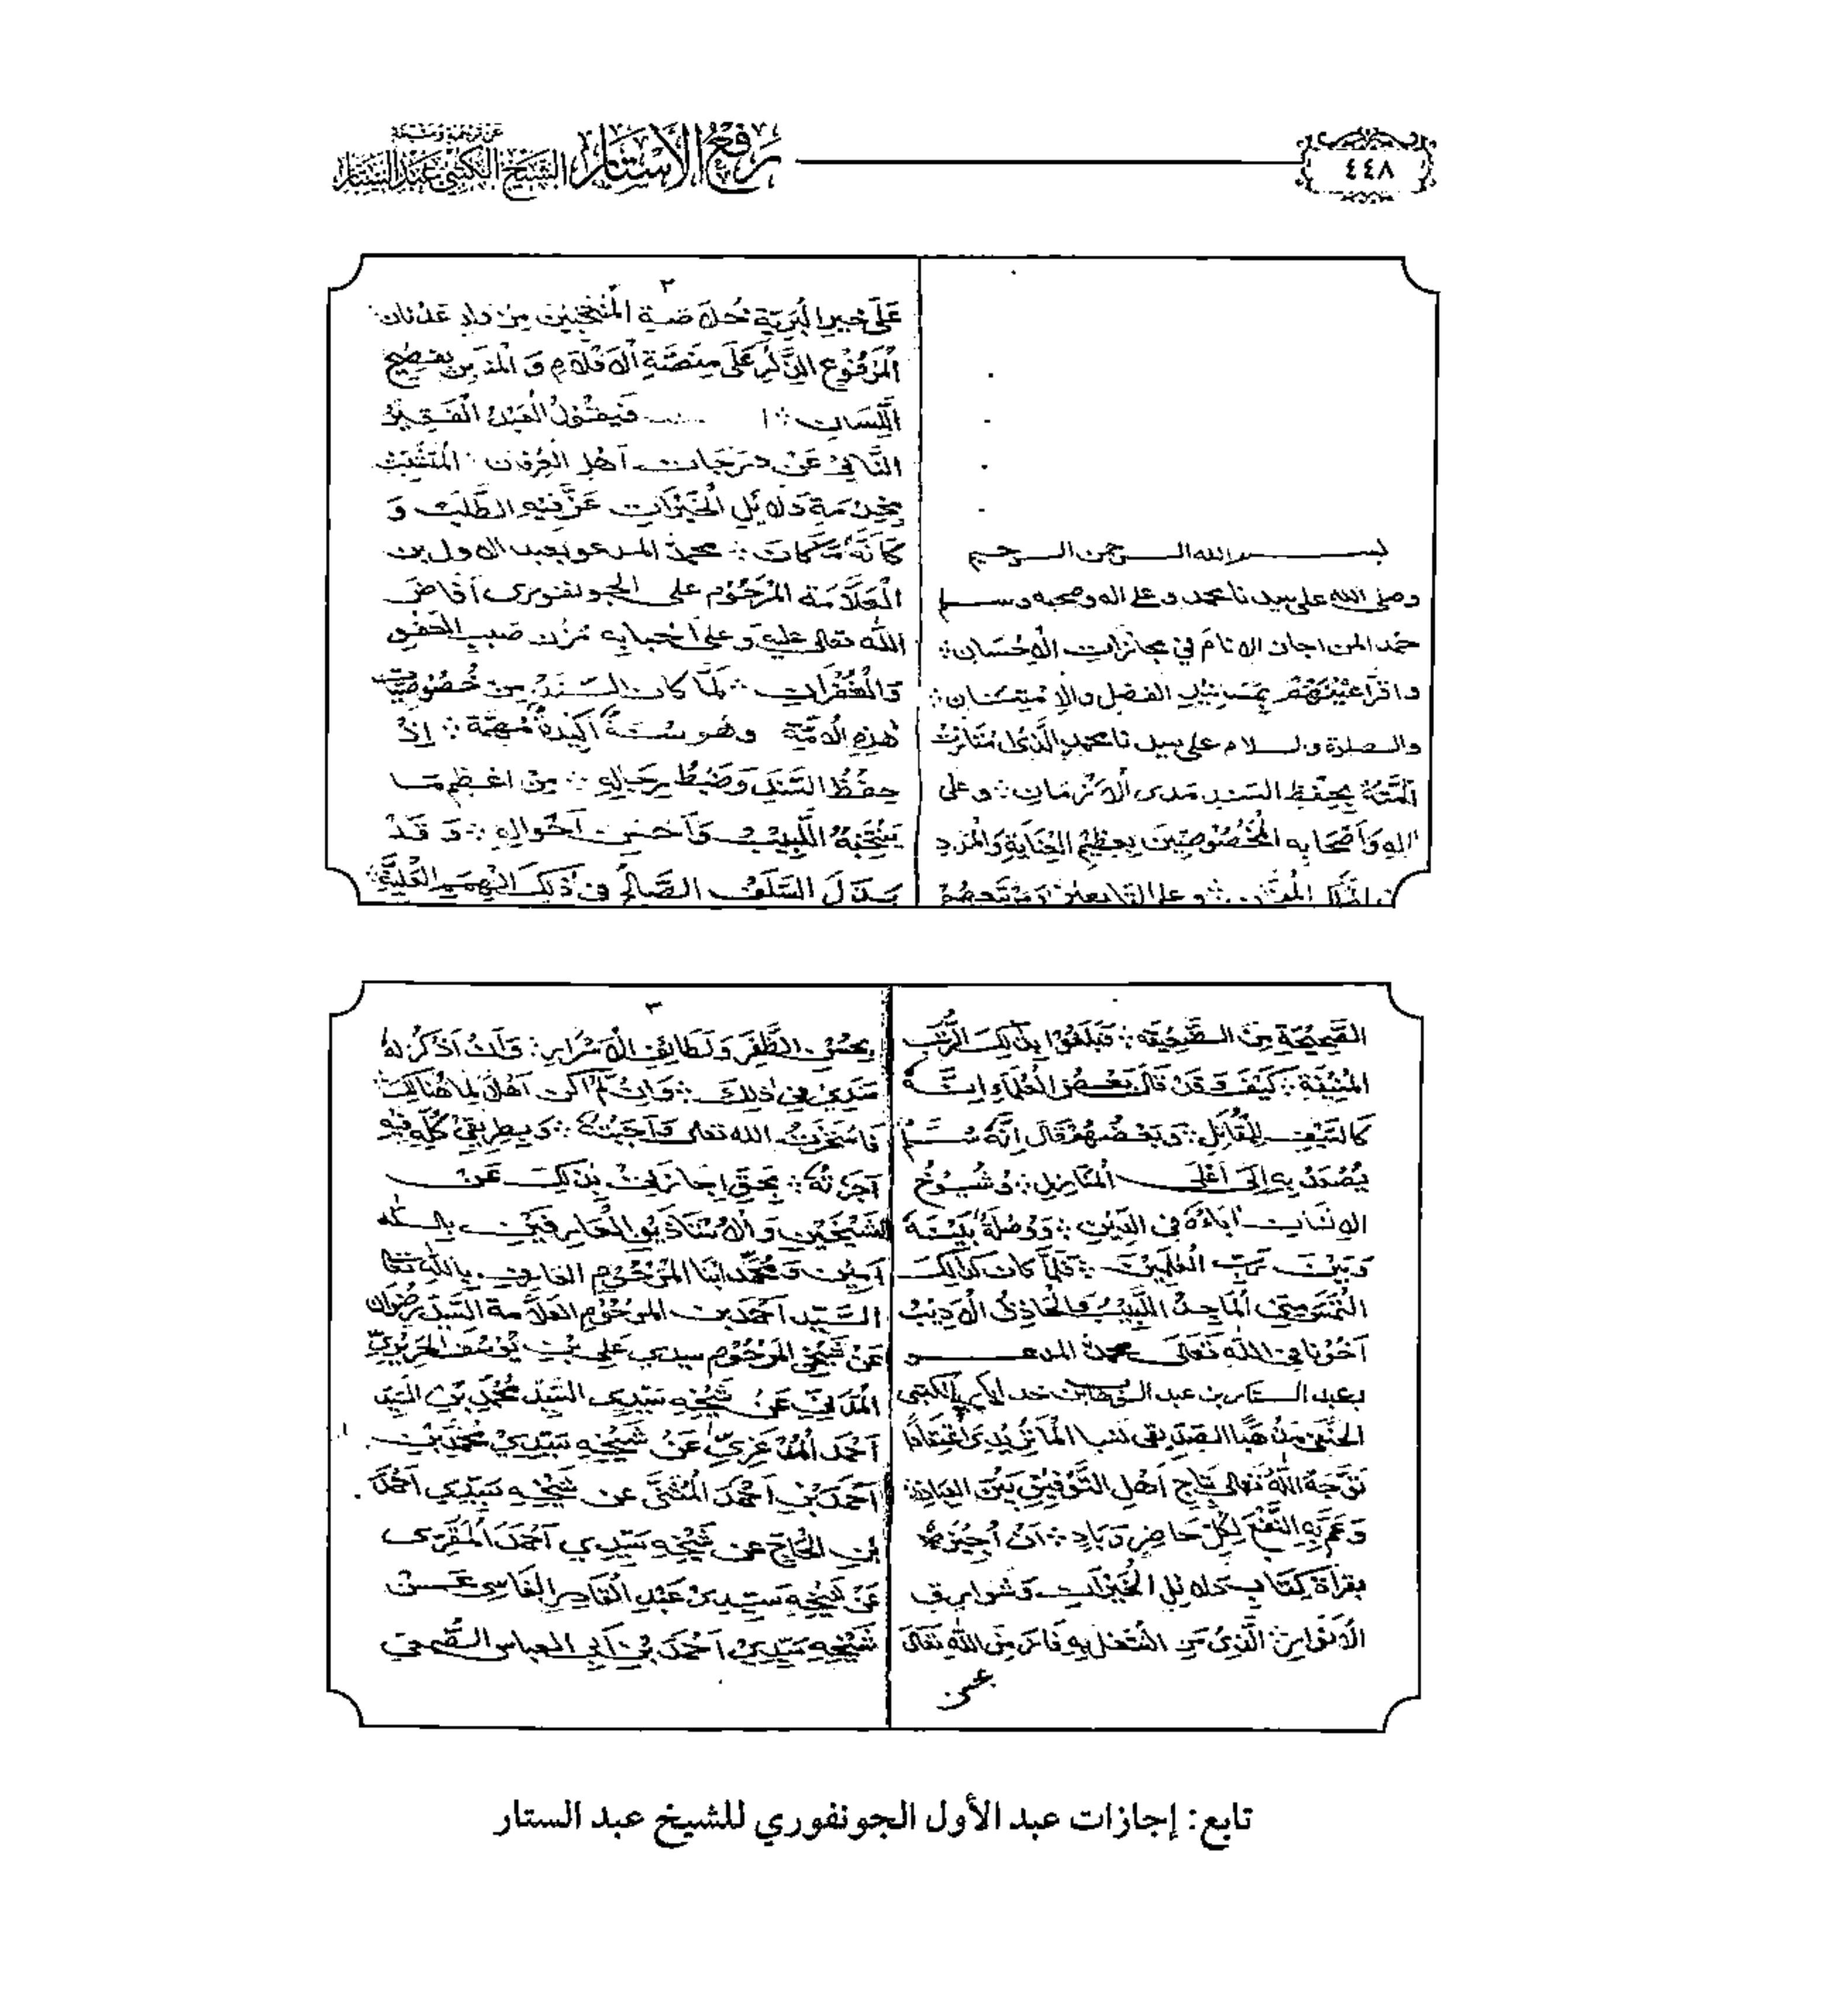 ٤٤٨
رفع الأستار
الشيخ الكتبي عبد الستار
بسم الله الرحمن الرحيم
وصلى الله على سيدنا محمد وعلى اله وصحبه وسلم
حمدا لمن اجاز الانام في مجازات الاحسان
واقر اعينهم الفضل والامتنان
والصلوة والسلام على سيدنا محمد الذي
بحفظ السند مدى الازمان وعلى
اله واصحابه المخصوصين بعظيم العناية والمزد
٢
على خير البرية المنتخبين من ولد عدنان
المرفوع الذكر على منصة الاقلام و بفصيح
اللسان فيقول العبد الفقير
عن درجات اهل العرفان المتشبث
بخدمة دلائل الخيرات عز فيه الطلب و
كانه محمد المدعو بعبد الاول بن
العلامة المرحوم على الجونفوري افاض
الله تعالى عليه وعلى احبابه مزن صيب العفو
والغفران لما كان السند من خصوصيات
هذه الامة وهو سنة اكيدة مهمة اذ
حفظ السند وضبط رجاله من اعظم ما
اللبيب واحسن احواله وقد
بذل السلف الصالح في ذلك الهمم العلية
الصحيحة من فبلغوا بذلك الرتب
المنيفة كيف وقد قال بعض العلماء انه
كالسيف للمقاتل وبعضهم قال انه سلم
يصعد به الى اعلى المنازل وشيوخ
الانسان اباؤه في الدين ووصلة بينه
وبين رب العلمين فلما كان كذلك
التمس مني الماجد اللبيب والحاذق الاديب
اخونا في الله تعالى محمد المدعو
بعبد الستار بن عبد الوهاب بن خدايار الكتبي
الحنفي مذهبا الصديقي نسبا الماتريدي اعتقادا
توجه الله تعالى بتاج اهل التوفيق بين العباد
وعم به النفع لكل حاضر وباد ان اجيزه
بقراة كتاب دلائل الخيرات وشوارق
الانوار الذي من اشتغل به فاز من الله تعالى
٣
بحسن الظفر ولطائف الاسرار وان اذكر له
سندي في ذلك وان لم اكن اهلا لما هنالك
فاستخرت الله تعالى واجبته وبطريقي كله فيه
اجزته بحق اجازتي بذلك عن
الشيخين والاستاذين العارفين بالله
امين ومحمد ابنا المرحوم العارف بالله تعا
السيد احمد بن المرحوم العلامة السيد رضوان
عن شيخي المرحوم سيدي علي بن يوسف الحريري
المدني عن شيخه سيدي السيد محمد بن السيد
احمد المدغري عن شيخه سيدي محمد بن
احمد بن احمد المثنى عن شيخه سيدي احمد
بن الحاج عن شيخه سيدي احمد المقري
عن شيخه سيدي عبد القادر الفاسي عن
شيخه سيدي احمد بن ابي العباس الصمعي
تابع: إجازات عبد الأول الجونفوري للشيخ عبد الستار